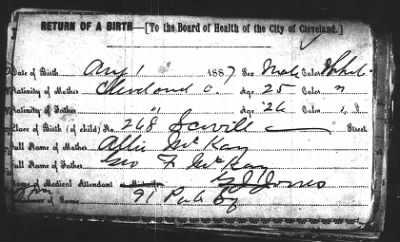 RETURN OF A BIRTH—[To the Board of Health of the City of Cleveland.]
Date of Birth Aug 1 1887 Sex Male Color White
Nativity of Mother Cleveland O. Age 25 Color "
Nativity of Father " Age 26 Color "
Place of Birth (of child) No. 268 Scovill Street
Full Name of Mother Allie McKay
Full Name of Father Geo F McKay
Name of Medical Attendant G J Jones
91